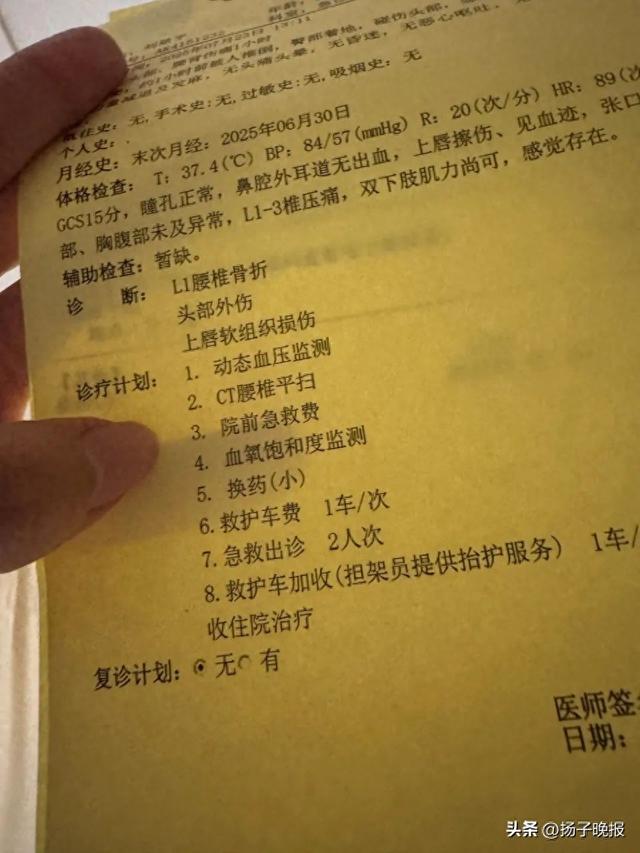 2025年07月23日 13:11
约1小时前被人推倒，臀部着地，碰伤头部，
无头痛头晕，无昏迷，无恶心呕吐，
既往史：无,手术史:无,过敏史:无,吸烟史：无
个人史：.
月经史：末次月经：2025年06月30日
体格检查：T：37.4(℃) BP：84/57(mmHg) R：20(次/分) HR：89(次
GCS15分，瞳孔正常，鼻腔外耳道无出血，上唇擦伤、见血迹，张口
部、胸腹部未及异常，L1-3椎压痛，双下肢肌力尚可，感觉存在。
辅助检查：暂缺。
诊 断：L1腰椎骨折
头部外伤
上唇软组织损伤
诊疗计划：1. 动态血压监测
2. CT腰椎平扫
3. 院前急救费
4. 血氧饱和度监测
5. 换药(小)
6.救护车费 1车/次
7.急救出诊 2人次
8.救护车加收(担架员提供抬护服务) 1车/
收住院治疗
复诊计划：无 有
医师签
日期：
头条 @扬子晚报